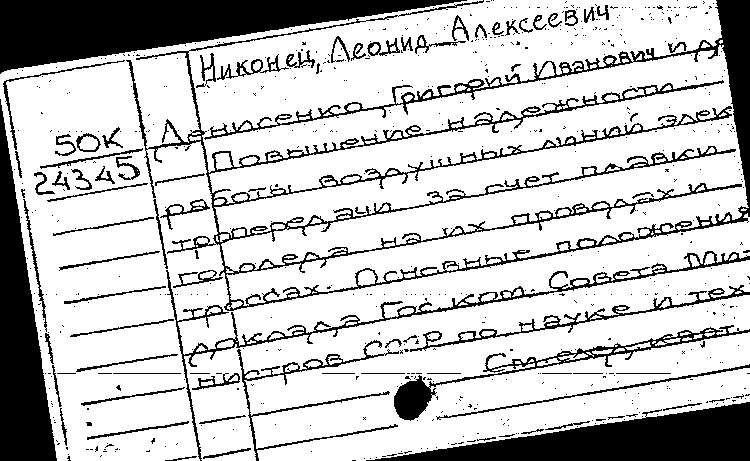 Никонец, Леонид Алексеевич
50К
24345
Денисенко, Григорий Иванович и др
Повышение надежности
работы воздушных линий элек
тропередачи за счет плавки
гололеда на их проводах и
троссах. Основные положения
доклада Гос. ком. Совета Ми
нистров СССР по науке и тех
См. след. карт.